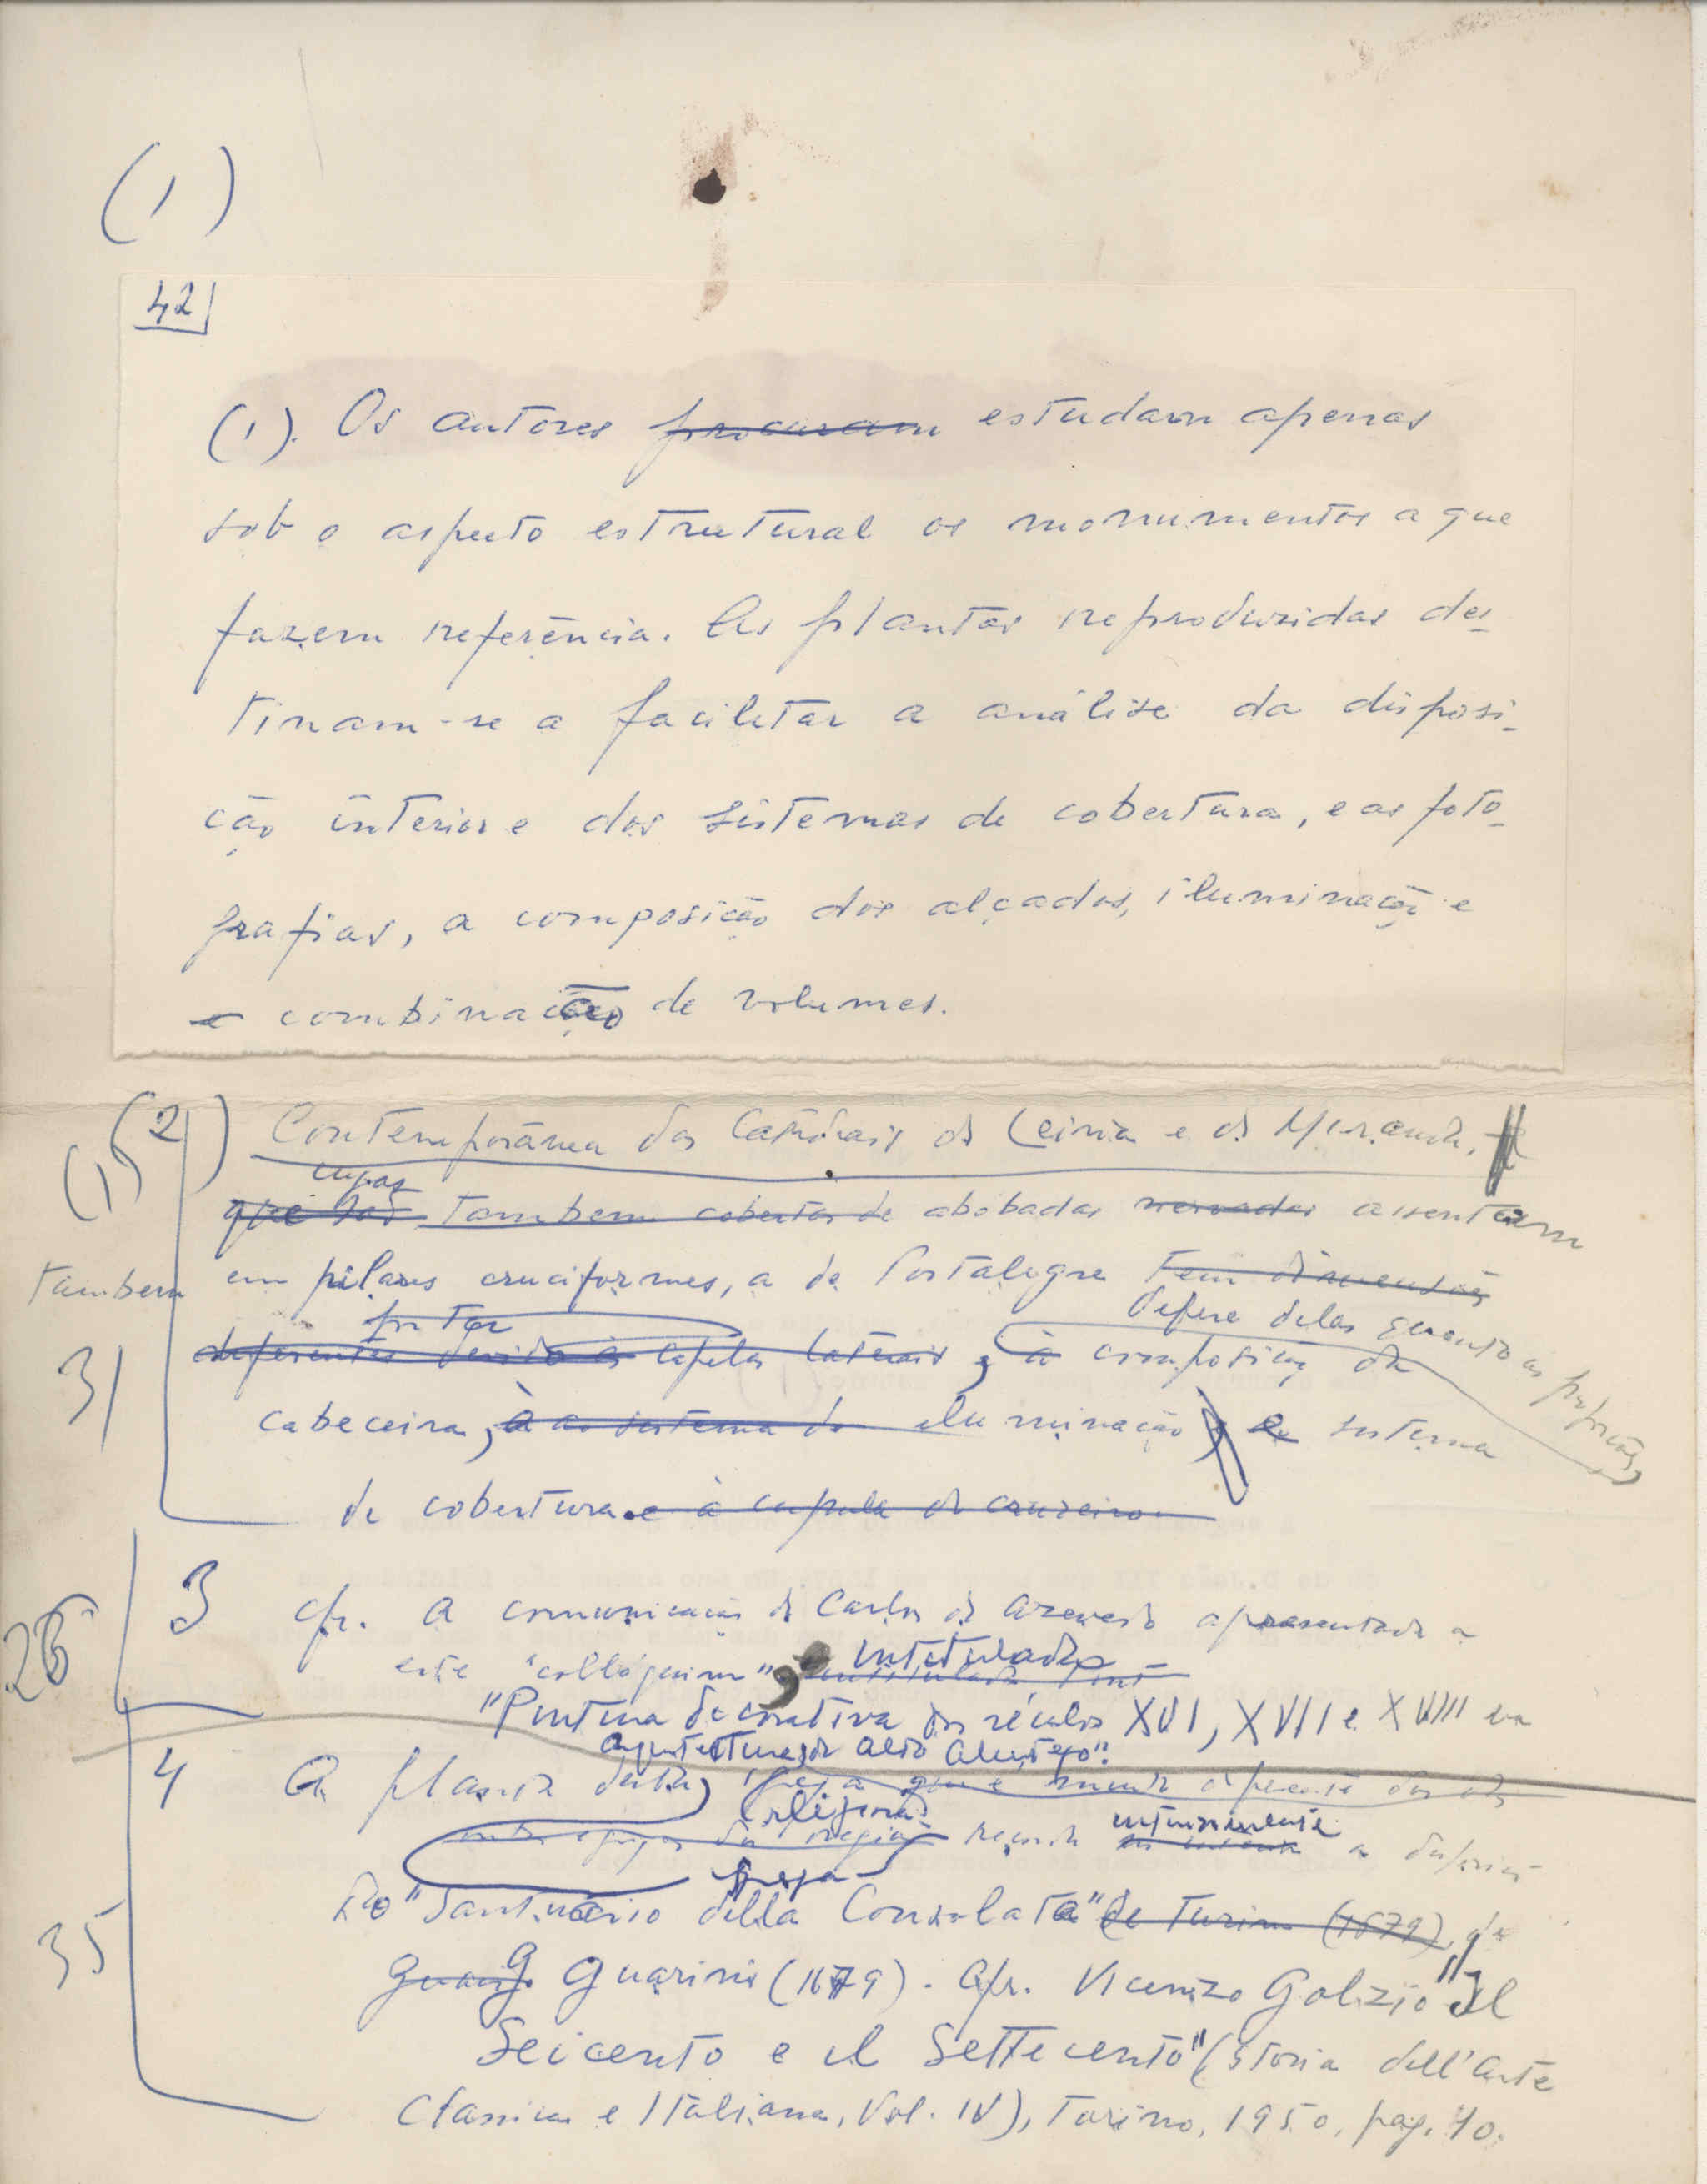 (1)
42
(1). Os autores procuram estudam apenas
sob o aspecto estrutural os monumentos a que
fazem referência. As plantas reproduzidas des-
tinam-se a facilitar a análise da disposi-
ção interior e dos sistemas de cobertura, e as foto-
grafias, a composição dos alçados, iluminação e
e combinação de volumes.
(1) (2) Contemporânea das Catedrais de Leiria e de Miranda,
cujas
que são tambem cobertas de abobadas nervadas assentam
tambem em pilares cruciformes, a de Portalegre tem dimensões
difere delas quanto as proporções,
31
diferentes devido às capelas laterais, à composição da
cabeceira, e ao sistema de iluminação e sistema
de cobertura. e à cupula do cruzeiro
26
3 cfr. a comunicação de Carlos de Azevedo apresentada a
este "colloquium", intitulada
"Pintura decorativa dos séculos XVI, XVII e XVIII na
arquitectura do Alto Alentejo".
4 A planta desta igreja que é muito diferente das
igrejas da região recorda a
35
Do "Santuario della Consolata" de Turim (1679), de
Guarinis (1679). Cfr. Vicenzo Golzio "Il
Seicento e il Settecento" (Storia dell'Arte
Classica e Italiana, Vol. IV), Torino, 1950, pag. 40.